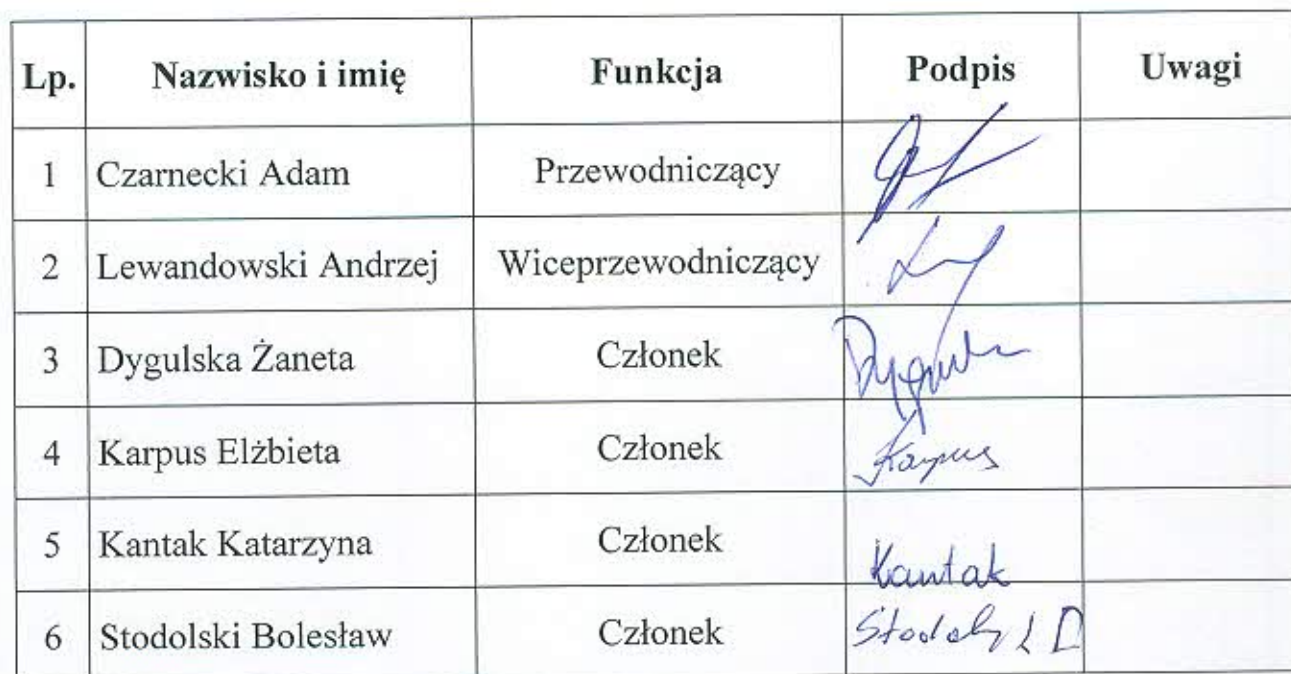 Lp. Nazwisko i imię Funkcja Podpis Uwagi
1 Czarnecki Adam Przewodniczący
2 Lewandowski Andrzej Wiceprzewodniczący
3 Dygulska Żaneta Członek
4 Karpus Elżbieta Członek Karpus
5 Kantak Katarzyna Członek Kantak
6 Stodolski Bolesław Członek